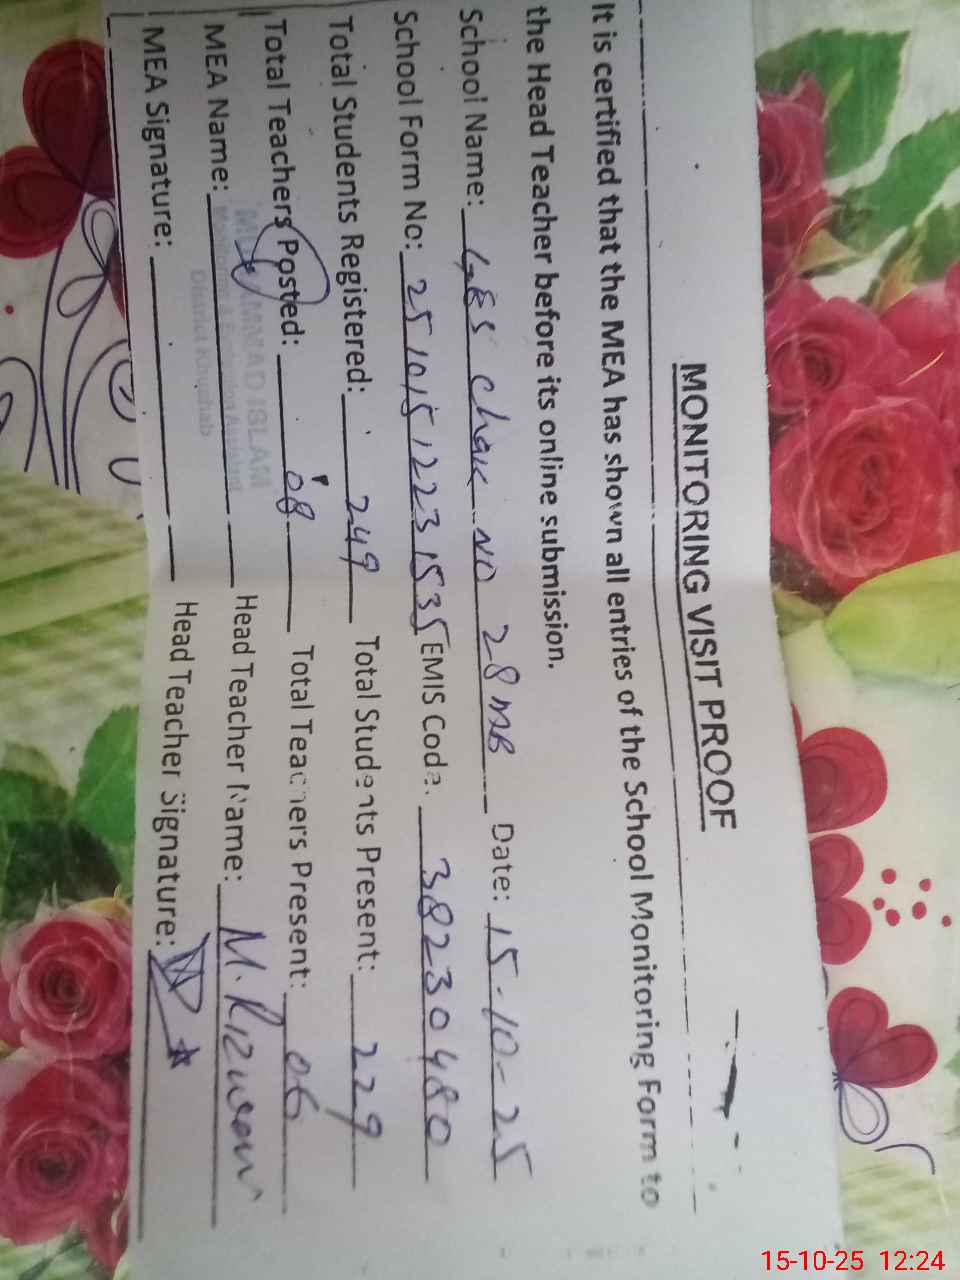 MONITORING VISIT PROOF
It is certified that the MEA has shown all entries of the School Monitoring Form to
the Head Teacher before its online submission.
School Name: GES Chak NO 28 MB Date: 15-10-25
School Form No: 25101512231535 EMIS Code: 38230480
Total Students Registered: 249 Total Students Present: 229
Total Teachers Posted: 08 Total Teachers Present: 06
MEA Name: MUHAMMAD ISLAM Head Teacher Name: M. Rizwan
Monitoring & Evaluation Assistant
District Khushab
MEA Signature: Head Teacher Signature:
15-10-25 12:24